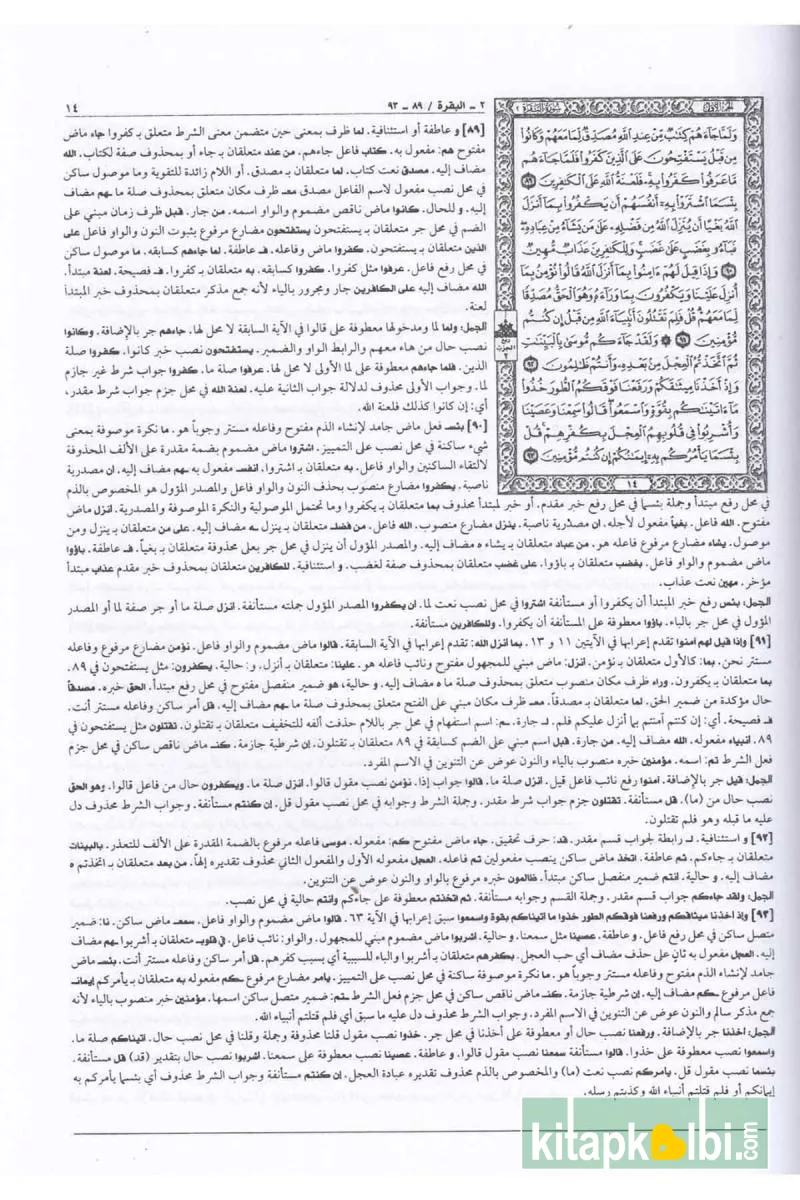 ١٤
٢ - البقرة / ٨٩ - ٩٣
الجزء الأول
سورة البقرة ٢
وَلَمَّا جَاءَهُمْ كِتَابٌ مِنْ عِنْدِ اللَّهِ مُصَدِّقٌ لِمَا مَعَهُمْ وَكَانُوا
مِنْ قَبْلُ يَسْتَفْتِحُونَ عَلَى الَّذِينَ كَفَرُوا فَلَمَّا جَاءَهُمْ
مَا عَرَفُوا كَفَرُوا بِهِ فَلَعْنَةُ اللَّهِ عَلَى الْكَافِرِينَ ٨٩
بِئْسَمَا اشْتَرَوْا بِهِ أَنْفُسَهُمْ أَنْ يَكْفُرُوا بِمَا أَنْزَلَ
اللَّهُ بَغْيًا أَنْ يُنَزِّلَ اللَّهُ مِنْ فَضْلِهِ عَلَى مَنْ يَشَاءُ مِنْ عِبَادِهِ
فَبَاءُو بِغَضَبٍ عَلَى غَضَبٍ وَلِلْكَافِرِينَ عَذَابٌ مُهِينٌ
٩٠ وَإِذَا قِيلَ لَهُمْ آمِنُوا بِمَا أَنْزَلَ اللَّهُ قَالُوا نُؤْمِنُ بِمَا
أُنْزِلَ عَلَيْنَا وَيَكْفُرُونَ بِمَا وَرَاءَهُ وَهُوَ الْحَقُّ مُصَدِّقًا
لِمَا مَعَهُمْ قُلْ فَلِمَ تَقْتُلُونَ أَنْبِيَاءَ اللَّهِ مِنْ قَبْلُ إِنْ كُنْتُمْ
مُؤْمِنِينَ ٩١ وَلَقَدْ جَاءَكُمْ مُوسَى بِالْبَيِّنَاتِ
ثُمَّ اتَّخَذْتُمُ الْعِجْلَ مِنْ بَعْدِهِ وَأَنْتُمْ ظَالِمُونَ ٩٢
وَإِذْ أَخَذْنَا مِيثَاقَكُمْ وَرَفَعْنَا فَوْقَكُمُ الطُّورَ خُذُوا
مَا آتَيْنَاكُمْ بِقُوَّةٍ وَاسْمَعُوا قَالُوا سَمِعْنَا وَعَصَيْنَا
وَأُشْرِبُوا فِي قُلُوبِهِمُ الْعِجْلَ بِكُفْرِهِمْ قُلْ
بِئْسَمَا يَأْمُرُكُمْ بِهِ إِيمَانُكُمْ إِنْ كُنْتُمْ مُؤْمِنِينَ ٩٣
١٤
[٨٩] و عاطفة أو استئنافية. لما ظرف بمعنى حين متضمن معنى الشرط متعلق بـ كفروا جاء ماض
مفتوح هم: مفعول به. كتاب فاعل جاءهم. من عند متعلقان بـ جاء أو بمحذوف صفة لكتاب. الله
مضاف إليه. مصدق نعت كتاب. لما متعلقان بـ مصدق. أو اللام زائدة للتقوية وما موصول ساكن
في محل نصب مفعول لاسم الفاعل مصدق معـ ظرف مكان متعلق بمحذوف صلة ما ـهم مضاف
إليه. و للحال. كانوا ماض ناقص مضموم والواو اسمه. من جار. قبل ظرف زمان مبني على
الضم في محل جر متعلقان بـ يستفتحون يستفتحون مضارع مرفوع بثبوت النون والواو فاعل على
الذين متعلقان بـ يستفتحون. كفروا ماض وفاعله. فـ عاطفة. لما جاءهم كسابقه. ما موصول ساكن
في محل رفع فاعل. عرفوا مثل كفروا. كفروا كسابقه. به متعلقان بـ كفروا. فـ فصيحة. لعنة مبتدأ.
الله مضاف إليه على الكافرين جار ومجرور بالياء لأنه جمع مذكر متعلقان بمحذوف خبر المبتدأ
لعنة.
الجمل: ولما لما ومدخولها معطوفة على قالوا في الآية السابقة لا محل لها. جاءهم جر بالإضافة. وكانوا
نصب حال من هاء معهم والرابط الواو والضمير. يستفتحون نصب خبر كانوا. كفروا صلة
الذين. فلما جاءهم معطوفة على لما الأولى لا محل لها. عرفوا صلة ما. كفروا جواب شرط غير جازم
لما. وجواب الأولى محذوف لدلالة جواب الثانية عليه. لعنة الله في محل جزم جواب شرط مقدر،
أي: إن كانوا كذلك فلعنة الله.
[٩٠] بئسـ فعل ماض جامد لإنشاء الذم مفتوح وفاعله مستتر وجوباً هو. ما نكرة موصوفة بمعنى
شيء ساكنة في محل نصب على التمييز. اشتروا ماض مضموم بضمة مقدرة على الألف المحذوفة
لالتقاء الساكنين والواو فاعل. به متعلقان بـ اشتروا. انفسـ مفعول به ـهم مضاف إليه. ان مصدرية
ناصبة. يكفروا مضارع منصوب بحذف النون والواو فاعل والمصدر المؤول هو المخصوص بالذم
في محل رفع مبتدأ وجملة بئسما في محل رفع خبر مقدم. أو خبر لمبتدأ محذوف بما متعلقان بـ يكفروا وما تحتمل الموصولية والنكرة الموصوفة والمصدرية. انزل ماض
مفتوح. الله فاعل. بغياً مفعول لأجله. ان مصدرية ناصبة. ينزل مضارع منصوب. الله فاعل. من فضلـ متعلقان بـ ينزل ـه مضاف إليه. على من متعلقان بـ ينزل ومن
موصول. يشاء مضارع مرفوع فاعله هو. من عباد متعلقان بـ يشاء ه مضاف إليه. والمصدر المؤول أن ينزل في محل جر بعلى محذوفة متعلقان بـ بغياً. فـ عاطفة. باؤوا
ماض مضموم والواو فاعل. بغضب متعلقان بـ باؤوا. على غضب متعلقان بمحذوف صفة لغضب. و استئنافية. للكافرين متعلقان بمحذوف خبر مقدم عذاب مبتدأ
مؤخر. مهين نعت عذاب.
الجمل: بئس رفع خبر المبتدأ أن يكفروا أو مستأنفة اشتروا في محل نصب نعت لما. ان يكفروا المصدر المؤول جملته مستأنفة. انزل صلة ما أو جر صفة لما أو المصدر
المؤول في محل جر بالباء. باؤوا معطوفة على المستأنفة أن يكفروا. وللكافرين مستأنفة.
[٩١] وإذا قيل لهم آمنوا تقدم إعرابها في الآيتين ١١ و ١٣. بما انزل الله: تقدم إعرابها في الآية السابقة. قالوا ماض مضموم والواو فاعل. نؤمن مضارع مرفوع وفاعله
مستتر نحن. بما: كالأول متعلقان بـ نؤمن. انزل: ماض مبني للمجهول مفتوح ونائب فاعله هو. علينا: متعلقان بـ أنزل، و: حالية. يكفرون: مثل يستفتحون في ٨٩.
بما متعلقان بـ يكفرون. وراء ظرف مكان منصوب متعلق بمحذوف صلة ما ه مضاف إليه. و حالية، هو ضمير منفصل مفتوح في محل رفع مبتدأ. الحق خبره. مصدقاً
حال مؤكدة من ضمير الحق. لما متعلقان بـ مصدقاً. معـ ظرف مكان مبني على الفتح متعلق بمحذوف صلة ما ـهم مضاف إليه. قل أمر ساكن وفاعله مستتر أنت.
فـ فصيحة. أي: إن كنتم آمنتم بما أنزل عليكم فلم. لـ جارة. ـم: اسم استفهام في محل جر باللام حذفت ألفه للتخفيف متعلقان بـ تقتلون. تقتلون مثل يستفتحون في
٨٩. انبياء مفعوله. الله مضاف إليه. من جارة. قبل اسم مبني على الضم كسابقة في ٨٩ متعلقان بـ تقتلون. إن شرطية جازمة. كنـ ماض ناقص ساكن في محل جزم
فعل الشرط تم: اسمه. مؤمنين خبره منصوب بالياء والنون عوض عن التنوين في الاسم المفرد.
الجمل: قيل جر بالإضافة. آمنوا رفع نائب فاعل قيل. انزل صلة ما. قالوا جواب إذا. نؤمن نصب مقول قالوا. انزل صلة ما. ويكفرون حال من فاعل قالوا. وهو الحق
نصب حال من (ما). قل مستأنفة. تقتلون جزم جواب شرط مقدر. وجملة الشرط وجوابه في محل نصب مقول قل. إن كنتم مستأنفة. وجواب الشرط محذوف دل
عليه ما قبله وهو فلم تقتلون.
[٩٢] و استئنافية. لـ رابطة لجواب قسم مقدر. قد: حرف تحقيق. جاء ماض مفتوح كم: مفعوله. موسى فاعله مرفوع بالضمة المقدرة على الألف للتعذر. بالبينات
متعلقان بـ جاءكم. ثم عاطفة. اتخذ ماض ساكن ينصب مفعولين تم فاعله. العجل مفعوله الأول والمفعول الثاني محذوف تقديره إلهاً. من بعد متعلقان بـ اتخذتم ه
مضاف إليه. و حالية. انتم ضمير منفصل ساكن مبتدأ. ظالمون خبره مرفوع بالواو والنون عوض عن التنوين.
الجمل: ولقد جاءكم جواب قسم مقدر. وجملة القسم وجوابه مستأنفة. ثم اتخذتم معطوفة على جاءكم وانتم حالية في محل نصب.
[٩٣] وإذ اخذنا ميثاقكم ورفعنا فوقكم الطور خذوا ما آتيناكم بقوة واسمعوا سبق إعرابها في الآية ٦٣. قالوا ماض مضموم والواو فاعل. سمعـ ماض ساكن. نا: ضمير
متصل ساكن في محل رفع فاعل. و عاطفة. عصينا مثل سمعنا. و حالية. اشربوا ماض مضموم مبني للمجهول. والواو: نائب فاعل. في قلوبـ متعلقان بـ أشربوا ـهم مضاف
إليه. العجل مفعول به ثانٍ على حذف مضاف أي حب العجل. بكفرهم متعلقان بـ أشربوا والباء للسببية أي بسبب كفرهم. قل أمر ساكن وفاعله مستتر أنت. بئسـ ماض
جامد لإنشاء الذم مفتوح وفاعله مستتر وجوباً هو. ما نكرة موصوفة ساكنة في محل نصب على التمييز. يامر مضارع مرفوع ـكم مفعوله به متعلقان بـ يأمركم إيمانـ
فاعل مرفوع ـكم مضاف إليه. إن شرطية جازمة. كنـ ماض ناقص ساكن في محل جزم فعل الشرط ـتم: ضمير متصل ساكن اسمها. مؤمنين خبر منصوب بالياء لأنه
جمع مذكر سالم والنون عوض عن التنوين في الاسم المفرد. وجواب الشرط محذوف دل عليه ما سبق أي فلم قتلتم أنبياء الله.
الجمل: اخذنا جر بالإضافة. ورفعنا نصب حال أو معطوفة على أخذنا في محل جر. خذوا نصب مقول قلنا محذوفة وجملة وقلنا في محل نصب حال. آتيناكم صلة ما.
واسمعوا نصب معطوفة على خذوا. قالوا مستأنفة سمعنا نصب مقول قالوا. و عاطفة. عصينا نصب معطوفة على سمعنا. اشربوا نصب حال بتقدير (قد) قل مستأنفة.
بئسما نصب مقول قل. يأمركم نصب نعت (ما) والمخصوص بالذم محذوف تقديره عبادة العجل. إن كنتم مستأنفة وجواب الشرط محذوف أي بئسما يأمركم به
إيمانكم أو فلم قتلتم أنبياء الله وكذبتم رسله.
kitapkalbi.com